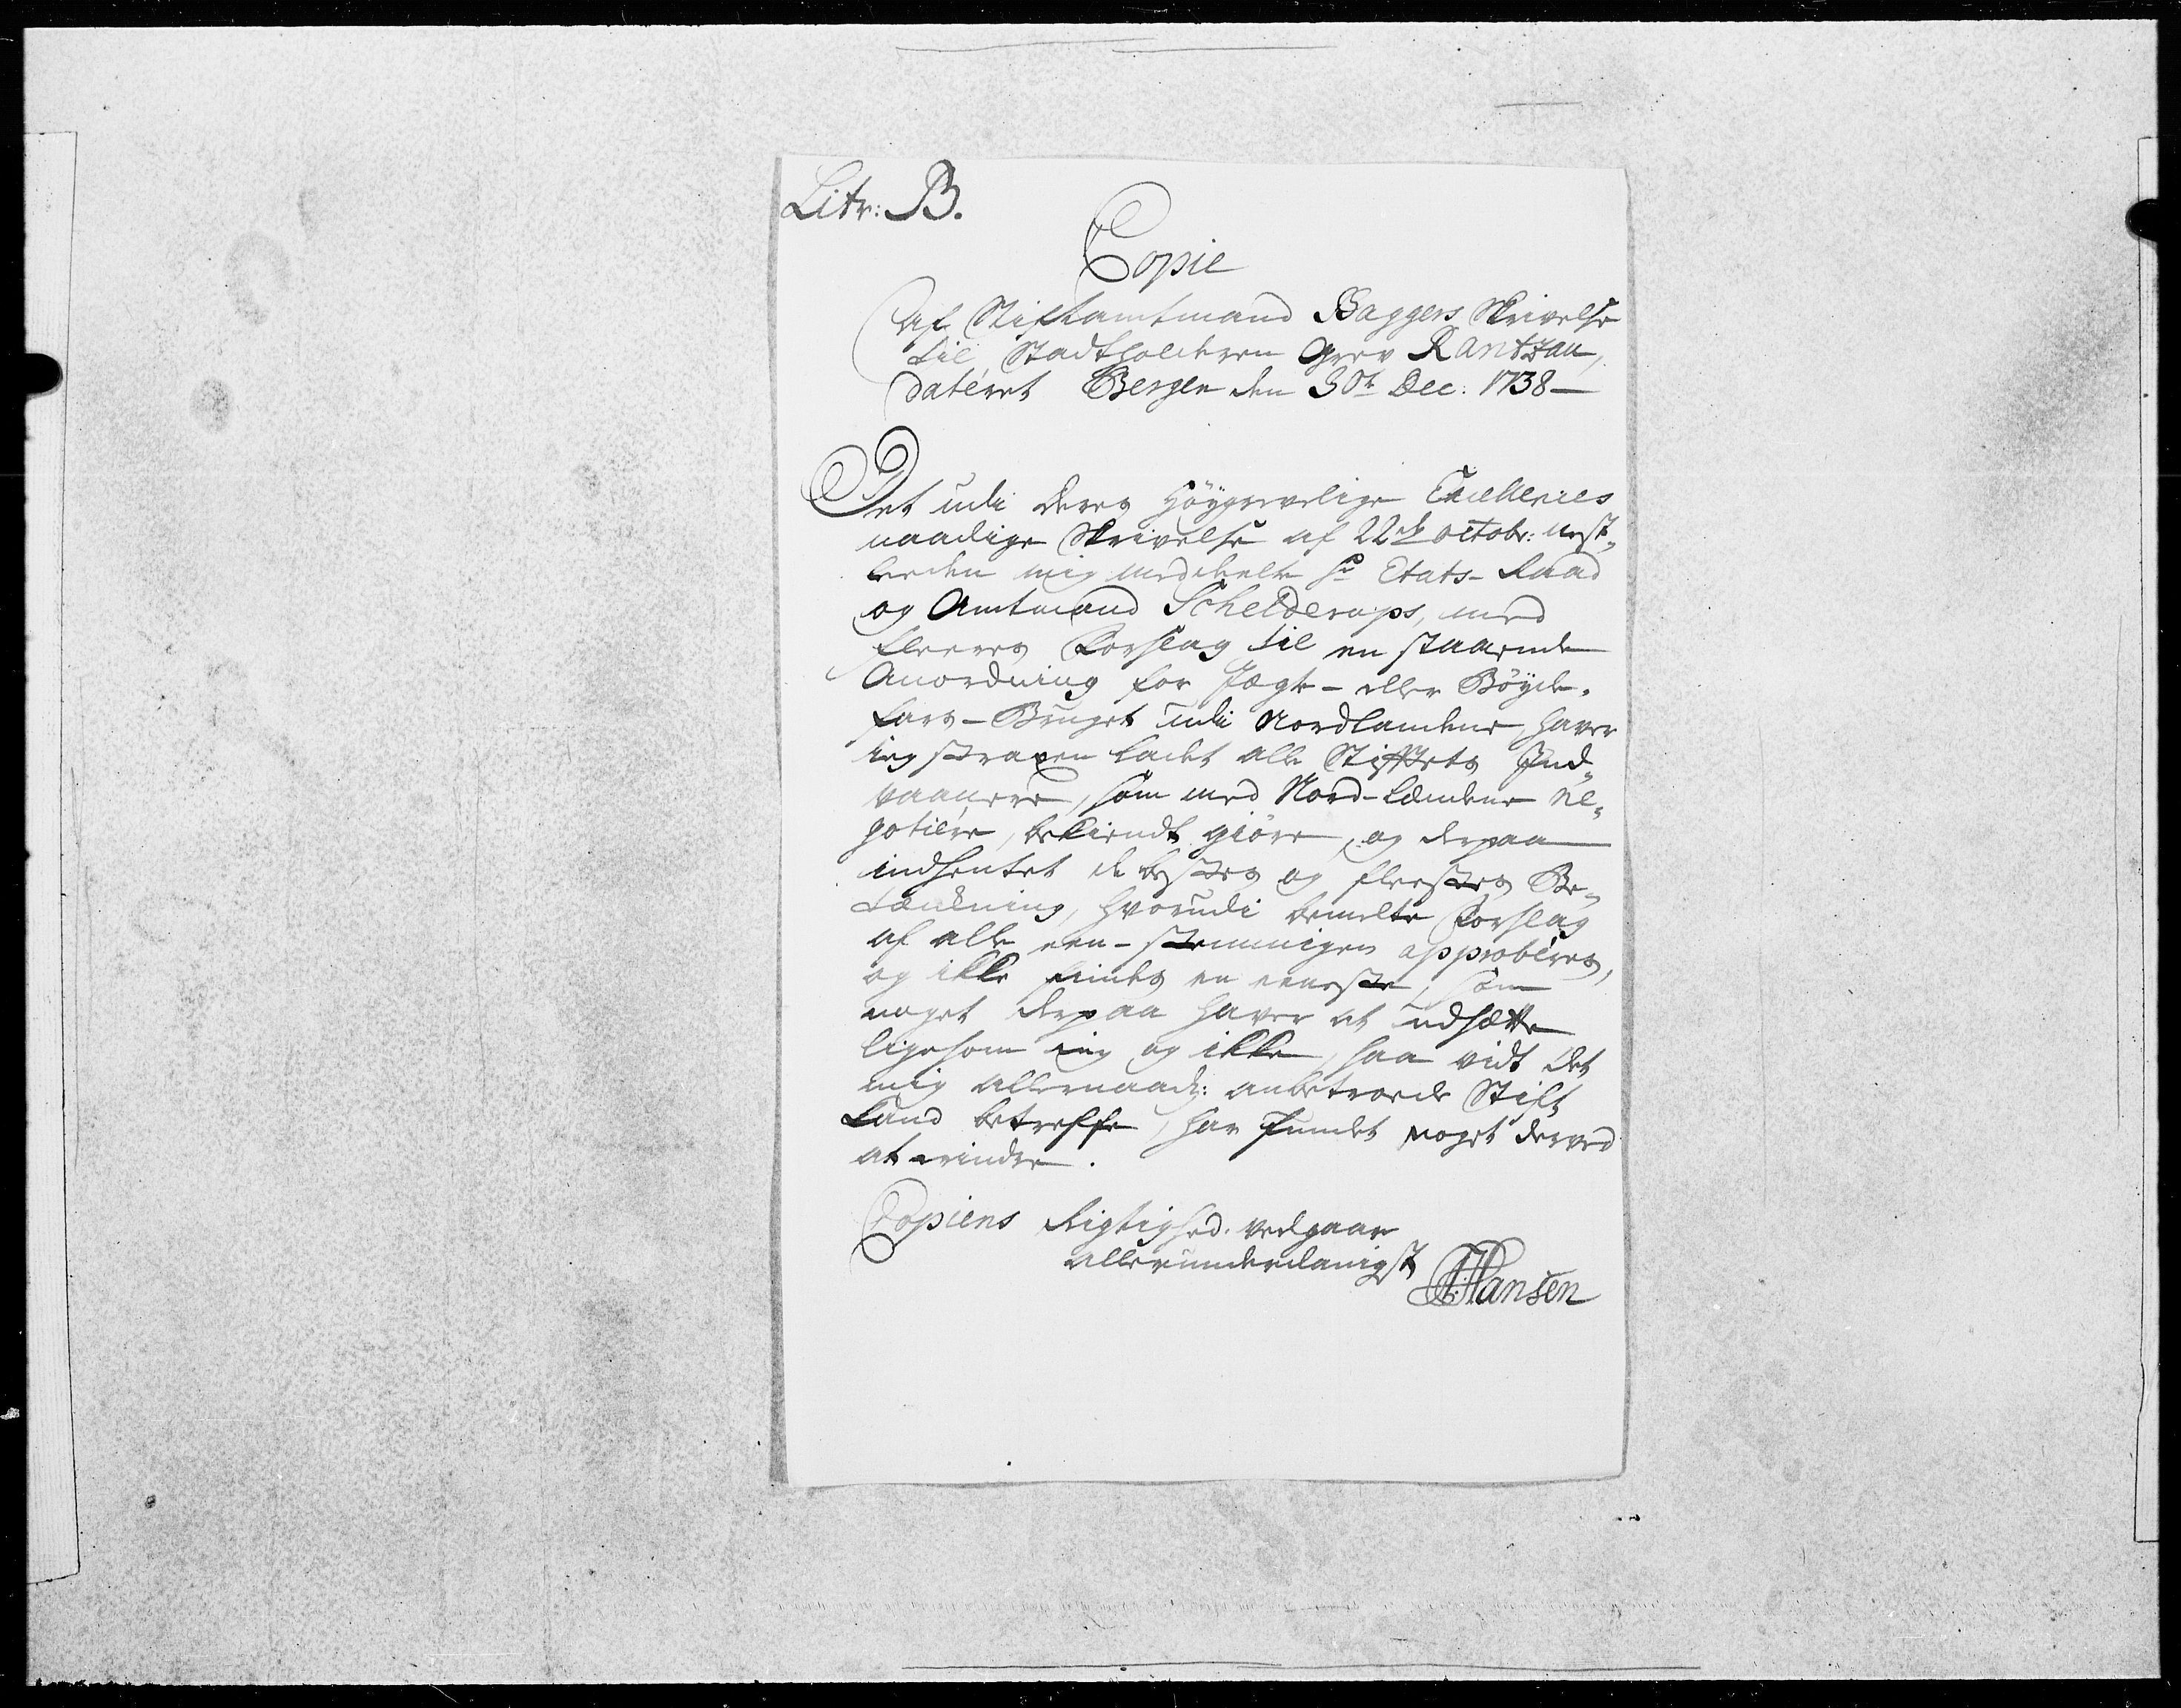 Litr: B.
Copie
Af Stiftamtmand Baggers Skrivelse
til Stadtholderen Grev Rantzau,
dateret Bergen den 30te Dec: 1738 —
Det udi deres Høygrevelige Excellences
naadige Skrivelse af 22de octobr: nest„
leeden mig meddeelte Hr Etats-Raad
og Amtmand Schelderups, med
fleeres Forslag til en staaende
Anordning for Jægte- eller Böyde„
fars-Bruget udi Nordlandene, haver
ieg straxen ladet alle Stiftets Ind„
vaanere, som med Nord-Landene ne„
gotiere, bekiendt giöre, og derpaa
indhentet de bestes og fleestes Be„
tænkning, hvorudi bemelte Forslag
af alle een-stemmigen approberes,
og ikke findes en eeneste, som
noget derpaa haver at udsætte
ligesom ieg og ikke, saa vidt det
mig allernaadg: anbetroede Stift
kand betreffe, har fundet noget derved
at erindre.
Copiens Rigtighed vedgaar
allerunderdanigst
Hansen